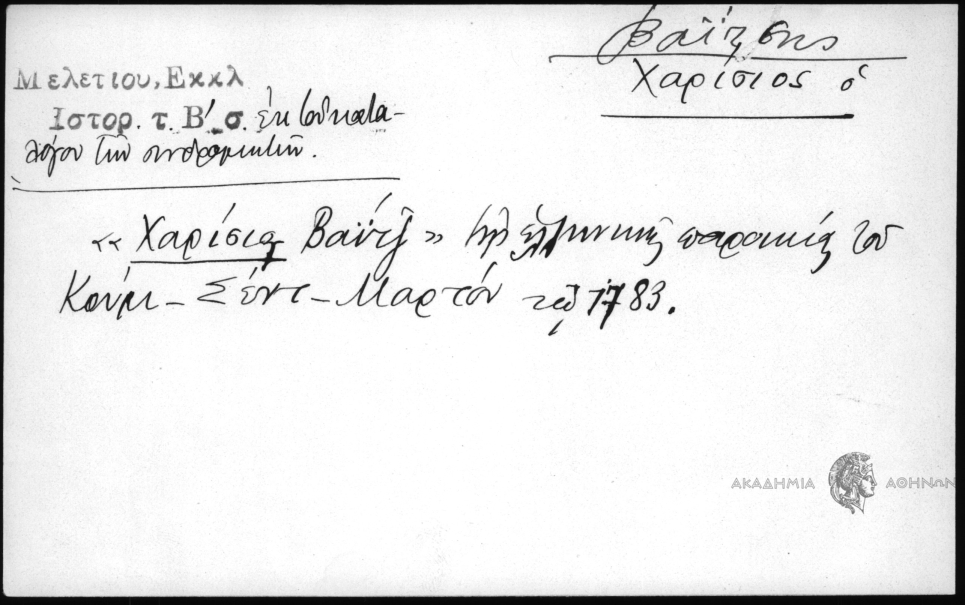 Βαΐτσης
Χαρίσιος ὁ
Μελετίου, Εκκλ
Ιστορ. τ. Β' σ. ἐκ τοῦ κατα-
λόγου τῶν συνδρομητῶν.
« Χαρίσης Βαΐτζ » τῆς ἑλληνικῆς παροικίας τοῦ
Κούμ - Σέντ - Μαρτόν τῷ 1783.
ΑΚΑΔΗΜΙΑ ΑΘΗΝΩΝ